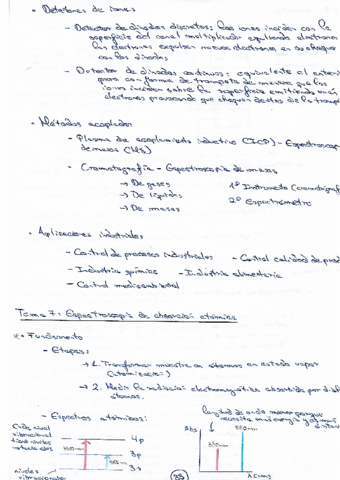 • Detectores de iones
- Detector de dinodos discretos: los iones inciden con la
superficie del canal multiplicador expulsando electrones
los electrones expulsan nuevos electrones en su choque
con los dinodos.
- Detector de dinodos continuos: equivalente al anterior
pero con forma de trompeta de manera que los
iones inciden sobre la superficie emitiendo más
electrones provocando que choquen dentro de la trompe
• Métodos acoplados
- Plasma de acoplamiento inductivo (ICP) - Espectroscop
de masas (MS)
- Cromatografía - Espectroscopia de masas
→ De gases
1º Instrumento (Cromatógraf
→ De líquidos
2º Espectrómetro
→ De masas
• Aplicaciones industriales
- Control de procesos industriales
- Control calidad de prod
- Industria química
- Industria alimentaria
- Control medioambiental
Tema 7: Espectroscopía de absorción atómica
• Fundamento
- Etapas:
→ 1. Transformar muestra en átomos en estado vapor
(atomización)
→ 2. Medir la radiación electromagnética absorbida por
átomos.
- Espectros atómicos:
longitud de onda menor porque
necesita más energía
Cada nivel
vibracional
tiene varios
rotacionales
niveles
vibracionales
4p
3p
3s
Abs
330nm
590nm
λ (nm)